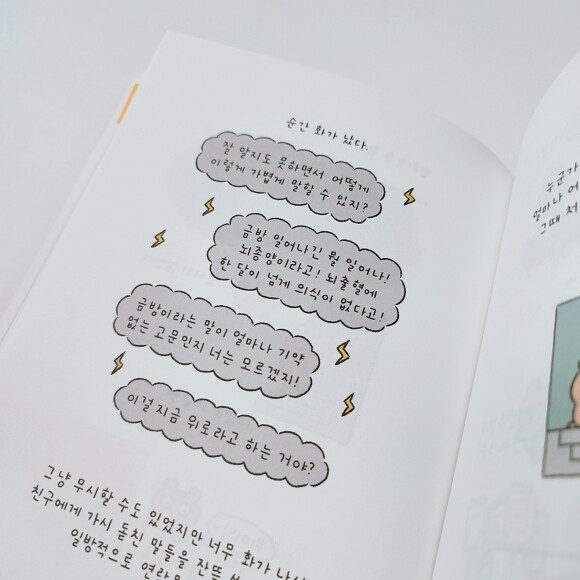 순간 화가 났다.
잘 알지도 못하면서 어떻게
이렇게 가볍게 말할 수 있지?
금방 일어나긴 뭘 일어나!
뇌종양이라고! 뇌출혈에
한 달이 넘게 의식이 없다고!
금방이라는 말이 얼마나 기약
없는 고문인지 너는 모르겠지!
이걸 지금 위로라고 하는 거야?
그냥 무시할 수도 있었지만 너무 화가 나서
친구에게 가시 돋친 말들을 잔뜩
일방적으로
누군가
얼마나
그때 처